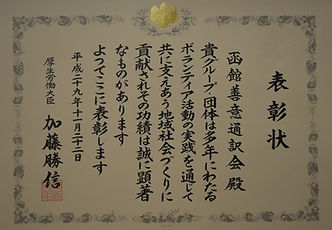 表彰状
函館善意通訳会 殿
貴グループ団体は多年にわたる
ボランティア活動の実践を通じて
共に支えあう地域社会づくりに
貢献されその功績は誠に顕著
なものがあります
よってここに表彰します
平成二十九年十一月二十二日
厚生労働大臣 加藤勝信